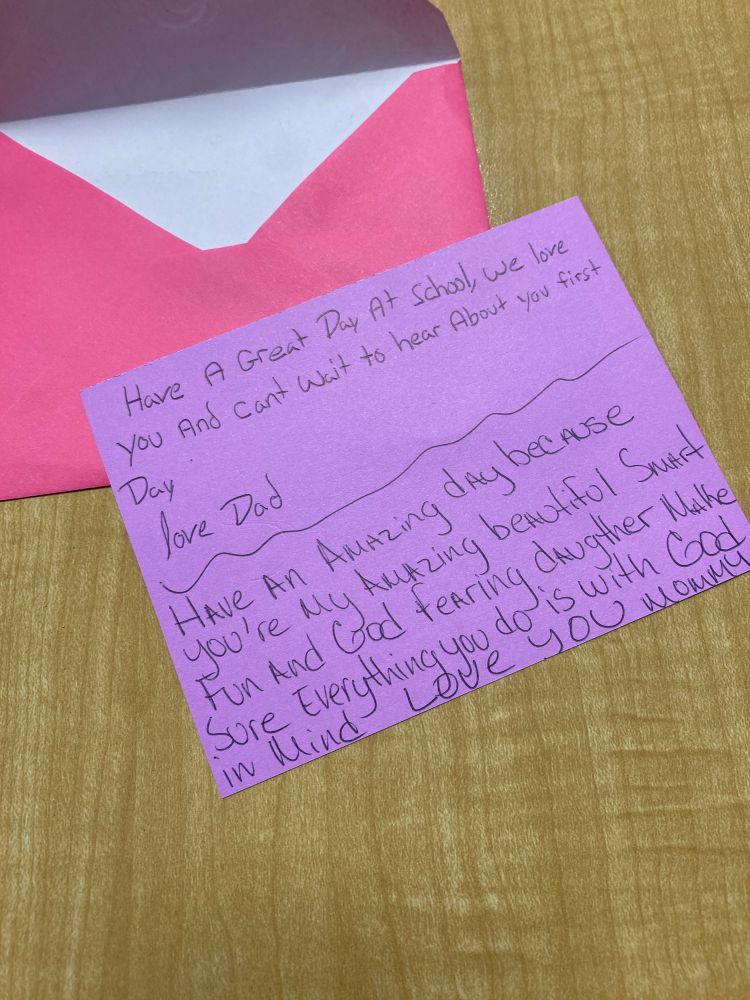 Have A Great Day At School, we love
you And Cant Wait to hear About you first
Day
love Dad
HAVE AN AMAZING dAY bECAUSE
you're My AMAZING bEAUtiful SMArt
Fun ANd God FEAriNg dAugther MAke
Sure Everything you do is with God
in Mind LOvE YOU Mommy